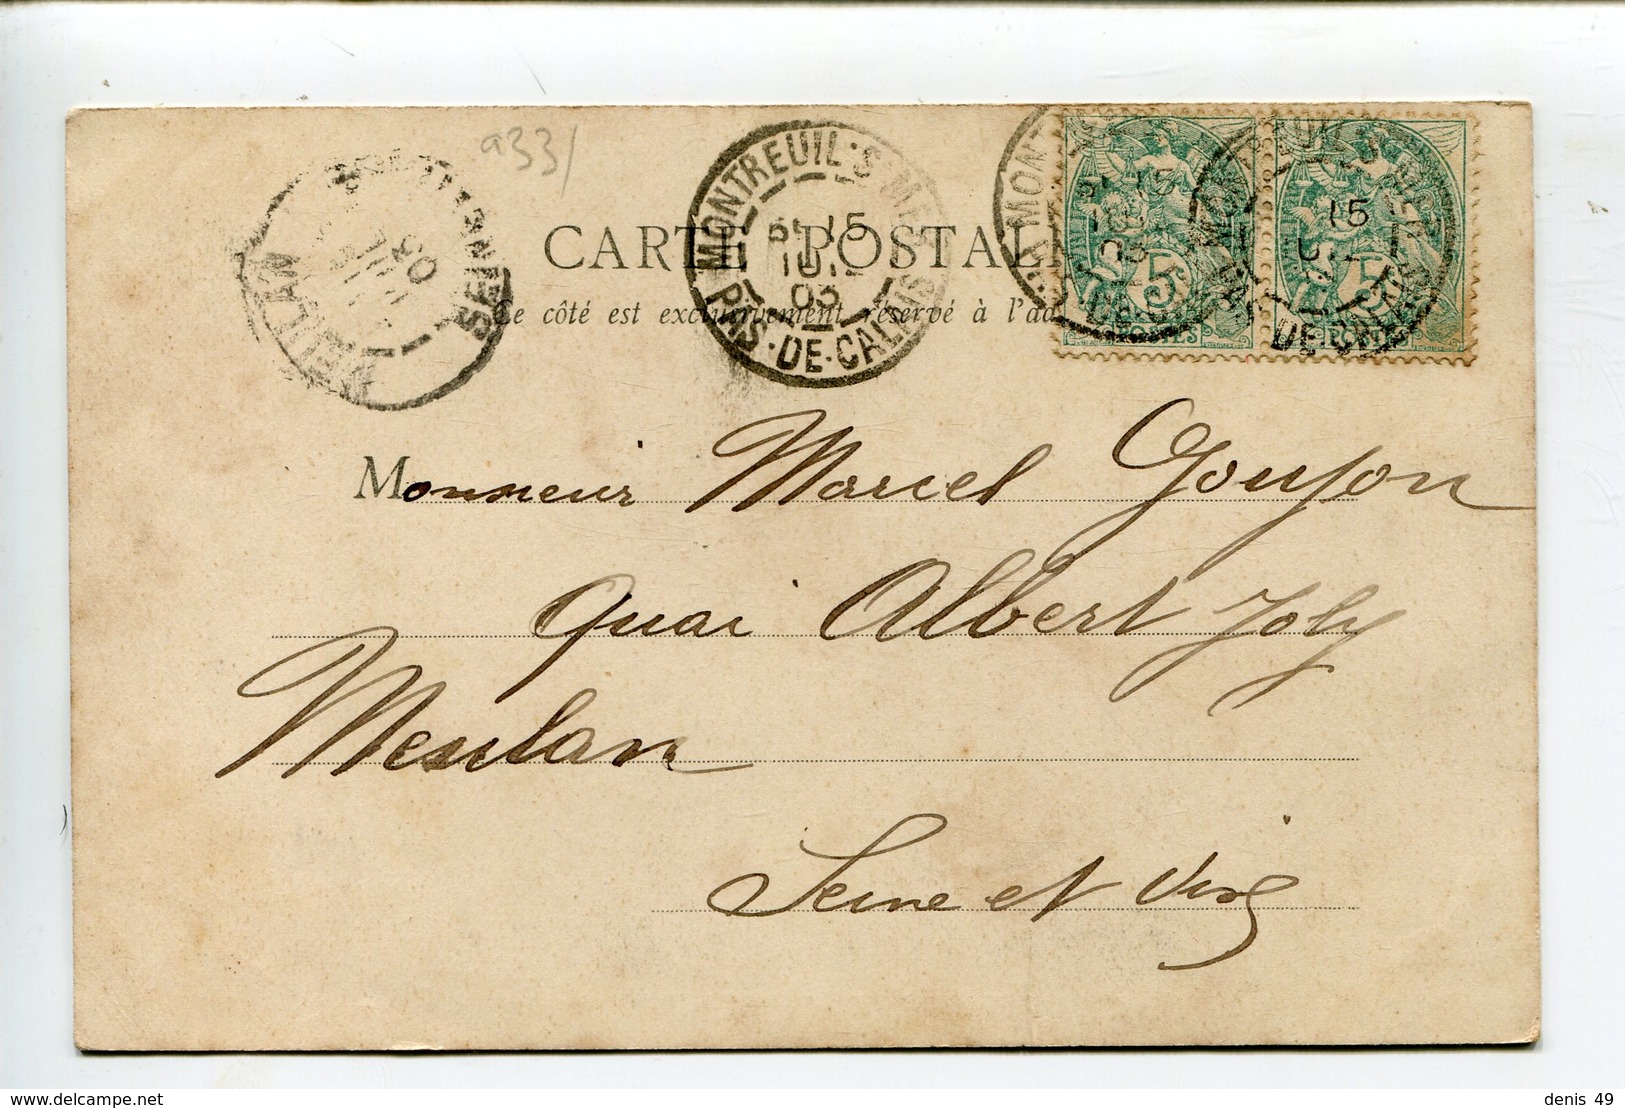 9331
MONTREUIL-S-MER
15
03
PAS-DE-CALAIS
MEULAN
03
5
POSTES
15
DE-CALAIS
5
POSTES
CARTE POSTALE
Ce côté est exclusivement réservé à l'ad
Monsieur Marcel Goujon
Quai Albert Joly
Meulan
Seine et Oise
www.delcampe.net
denis 49